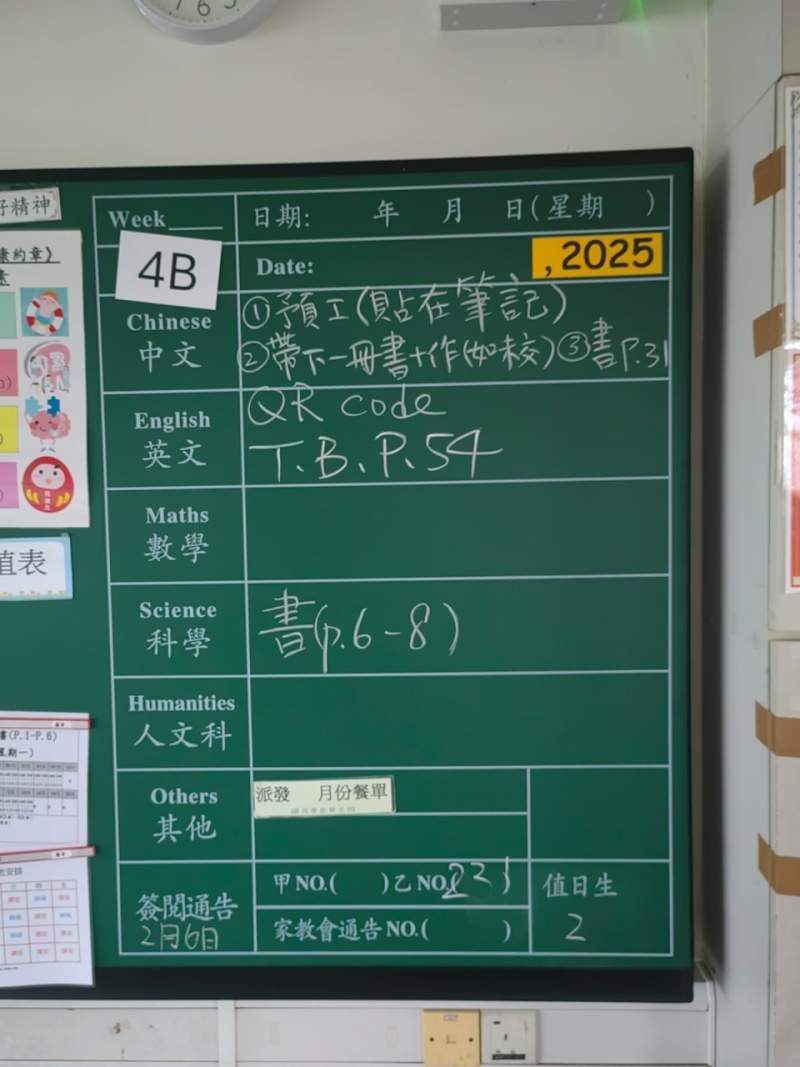 7 6 5
好精神
康約章》
Week
日期: 年 月 日(星期 )
4B
Date:
, 2025
Chinese
中文
①預工(貼在筆記)
②帶下一冊書+作(如未交) ③書P.31
English
英文
QR code
T.B.P.54
Maths
數學
值表
Science
科學
書(p.6-8)
Humanities
人文科
書(P.1-P.6)
星期一)
Others
其他
派發 月份餐單
簽閱通告
2月6日
甲NO.( )乙NO.(221)
家教會通告NO.( )
值日生
2
三 四 五